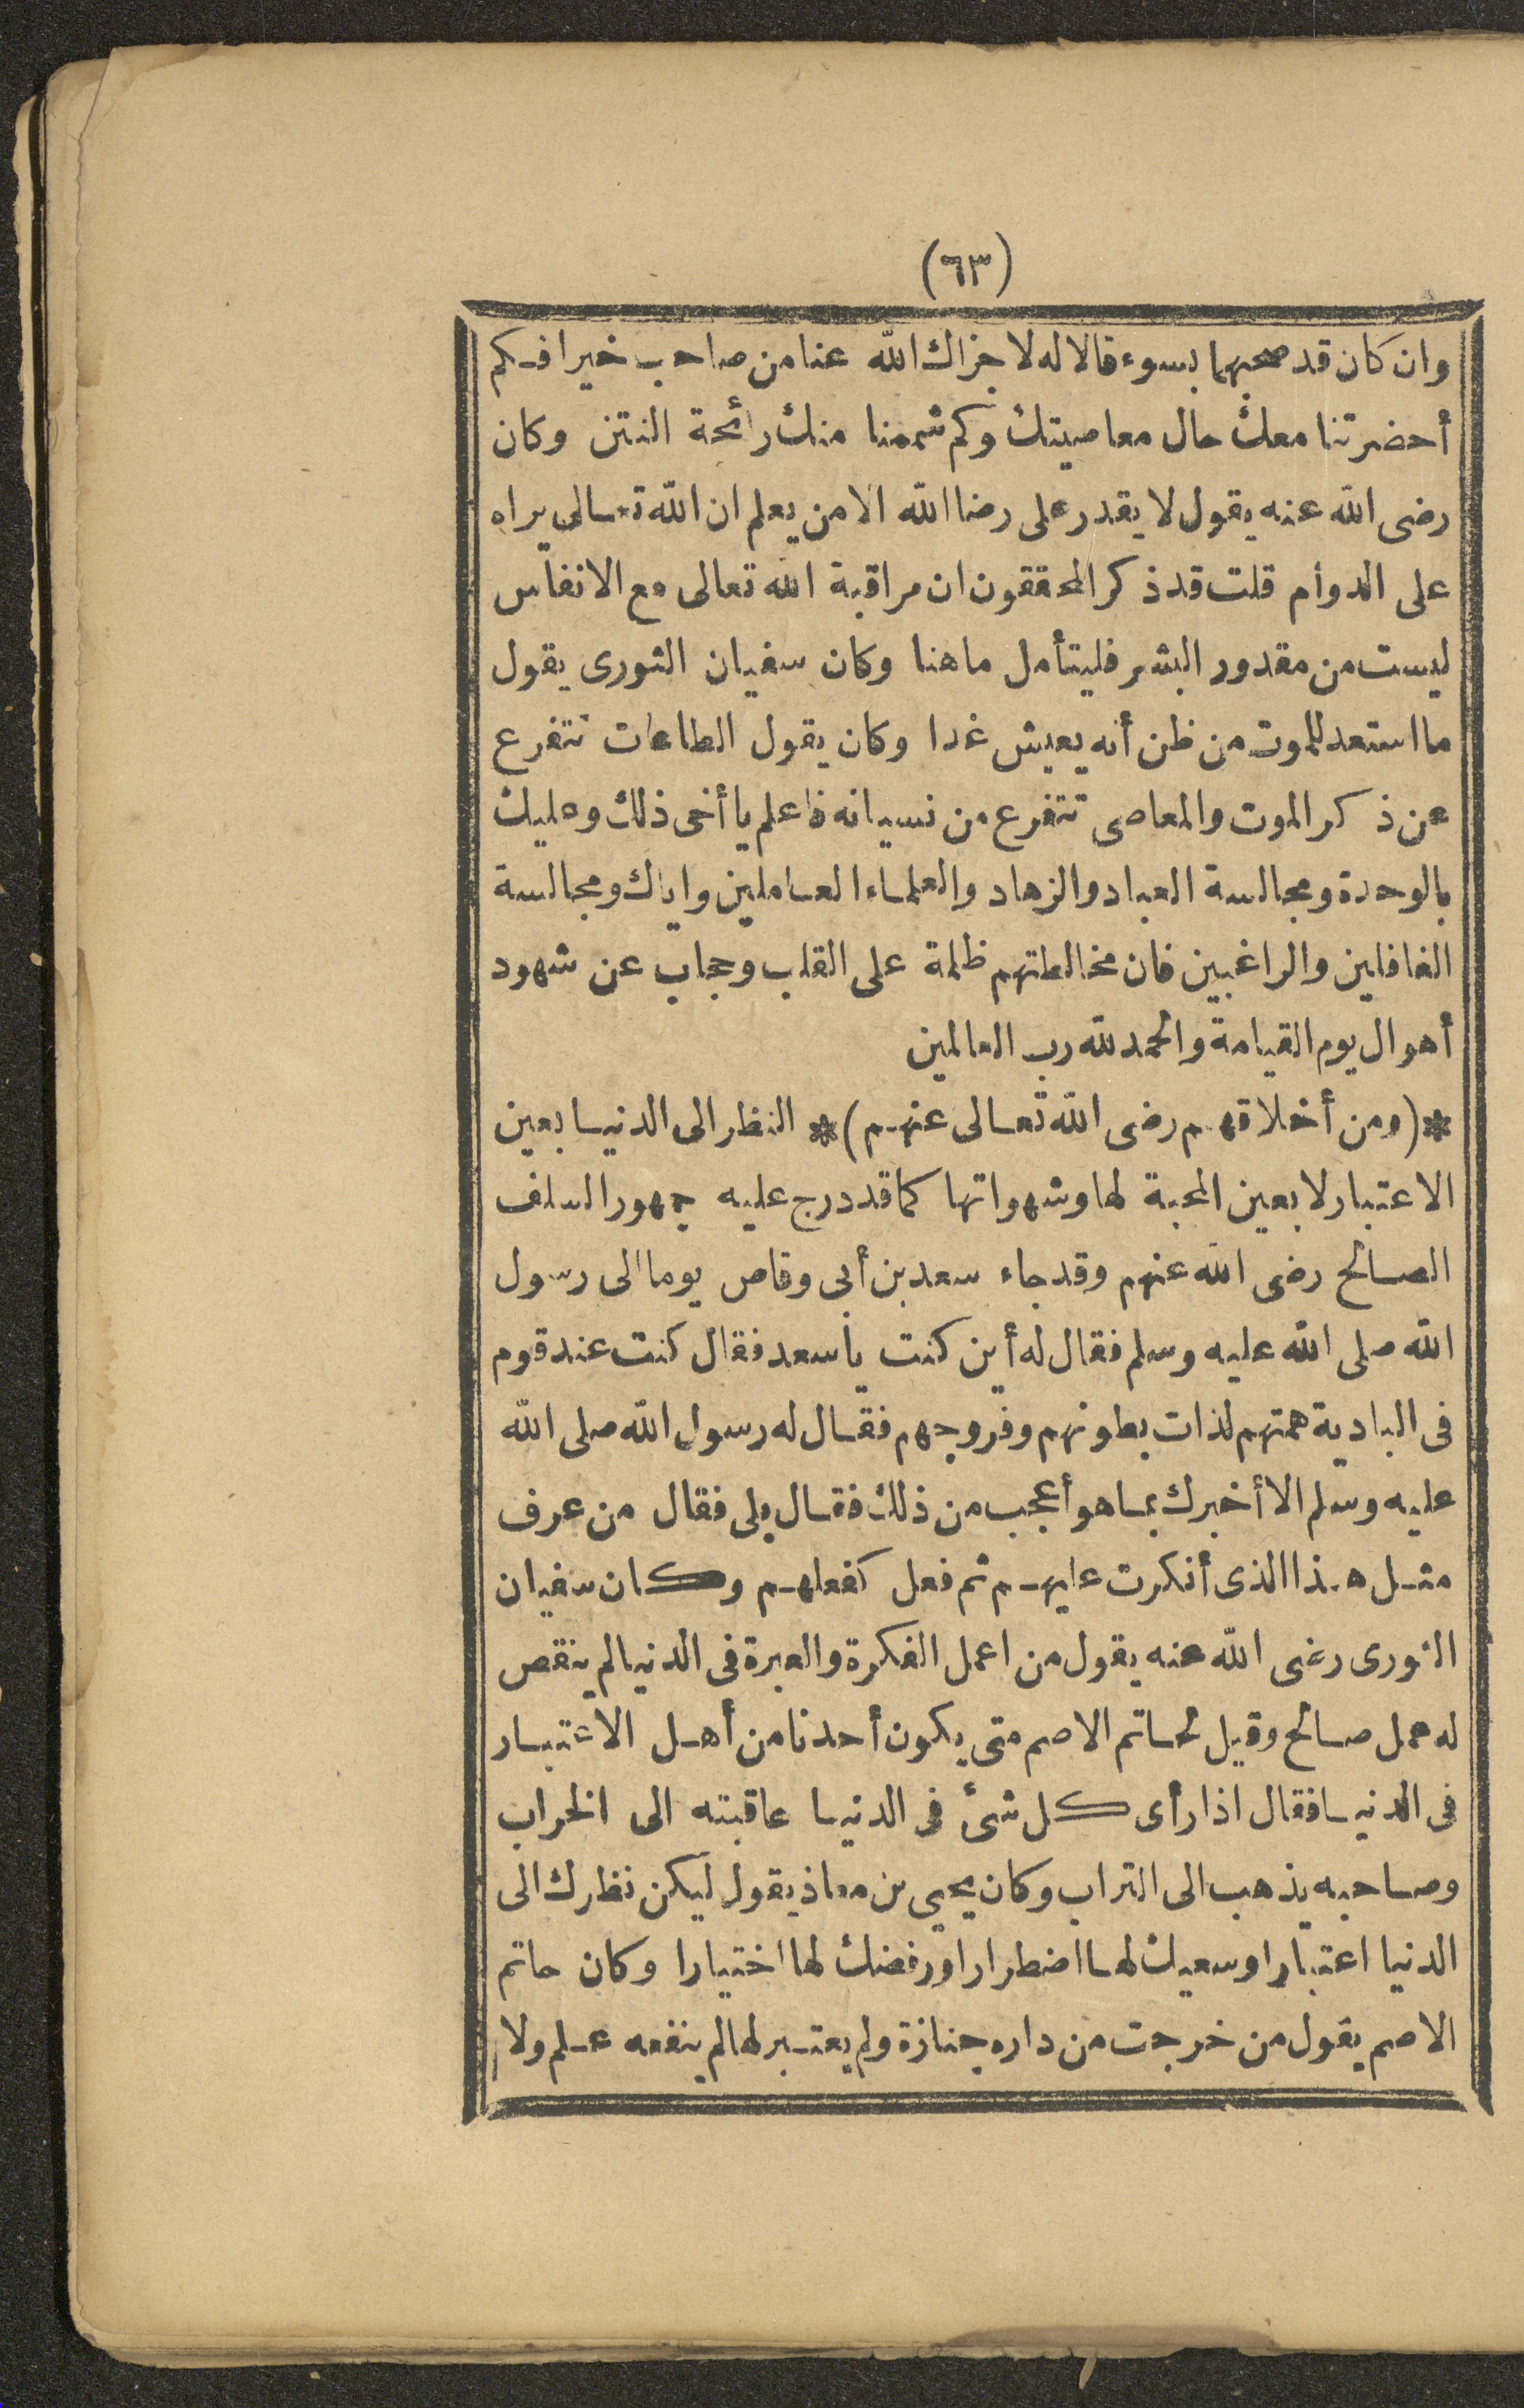 (٦٣)
وان كان قد صحبهما بسوء قالا له لا جزاك الله عنا من صاحب خيرا فكم
أحضرتنا معك حال معاصيتك وكم شممنا منك رائحة النتن وكان
رضى الله عنه يقول لا يقدر على رضا الله الا من يعلم ان الله تعالى يراه
على الدوام قلت قد ذكر المحققون ان مراقبة الله تعالى مع الانفاس
ليست من مقدور البشر فليتأمل ما هنا وكان سفيان الثورى يقول
ما استعد للموت من ظن أنه يعيش غدا وكان يقول الطاعات تتفرع
عن ذكر الموت والمعاصى تتفرع من نسيانه فاعلم يا أخى ذلك وعليك
بالوحدة ومجالسة العباد والزهاد والعلماء العاملين واياك ومجالسة
الغافلين والراغبين فان مخالطتهم ظلمة على القلب وحجاب عن شهود
أهوال يوم القيامة والحمد لله رب العالمين
* (ومن أخلاقهم رضى الله تعالى عنهم) * النظر الى الدنيا بعين
الاعتبار لا بعين المحبة لها وشهواتها كما قد درج عليه جمهور السلف
الصالح رضى الله عنهم وقد جاء سعد بن أبى وقاص يوما الى رسول
الله صلى الله عليه وسلم فقال له أين كنت يا سعد فقال كنت عند قوم
فى البادية همتهم لذات بطونهم وفروجهم فقال له رسول الله صلى الله
عليه وسلم الا أخبرك بما هو أعجب من ذلك فقال بلى فقال من عرف
مثل هذا الذى أنكرت عليهم ثم فعل كفعلهم وكان سفيان
الثورى رضى الله عنه يقول من اعمل الفكرة والعبرة فى الدنيا لم ينقص
له عمل صالح وقيل لحاتم الاصم متى يكون أحدنا من أهل الاعتبار
فى الدنيا فقال اذا رأى كل شئ فى الدنيا عاقبته الى الخراب
وصاحبه يذهب الى التراب وكان يحيى بن معاذ يقول ليكن نظرك الى
الدنيا اعتبارا وسعيك لها اضطرارا ورفضك لها اختيارا وكان حاتم
الاصم يقول من خرجت من داره جنازة ولم يعتبر لها لم ينفعه علم ولا